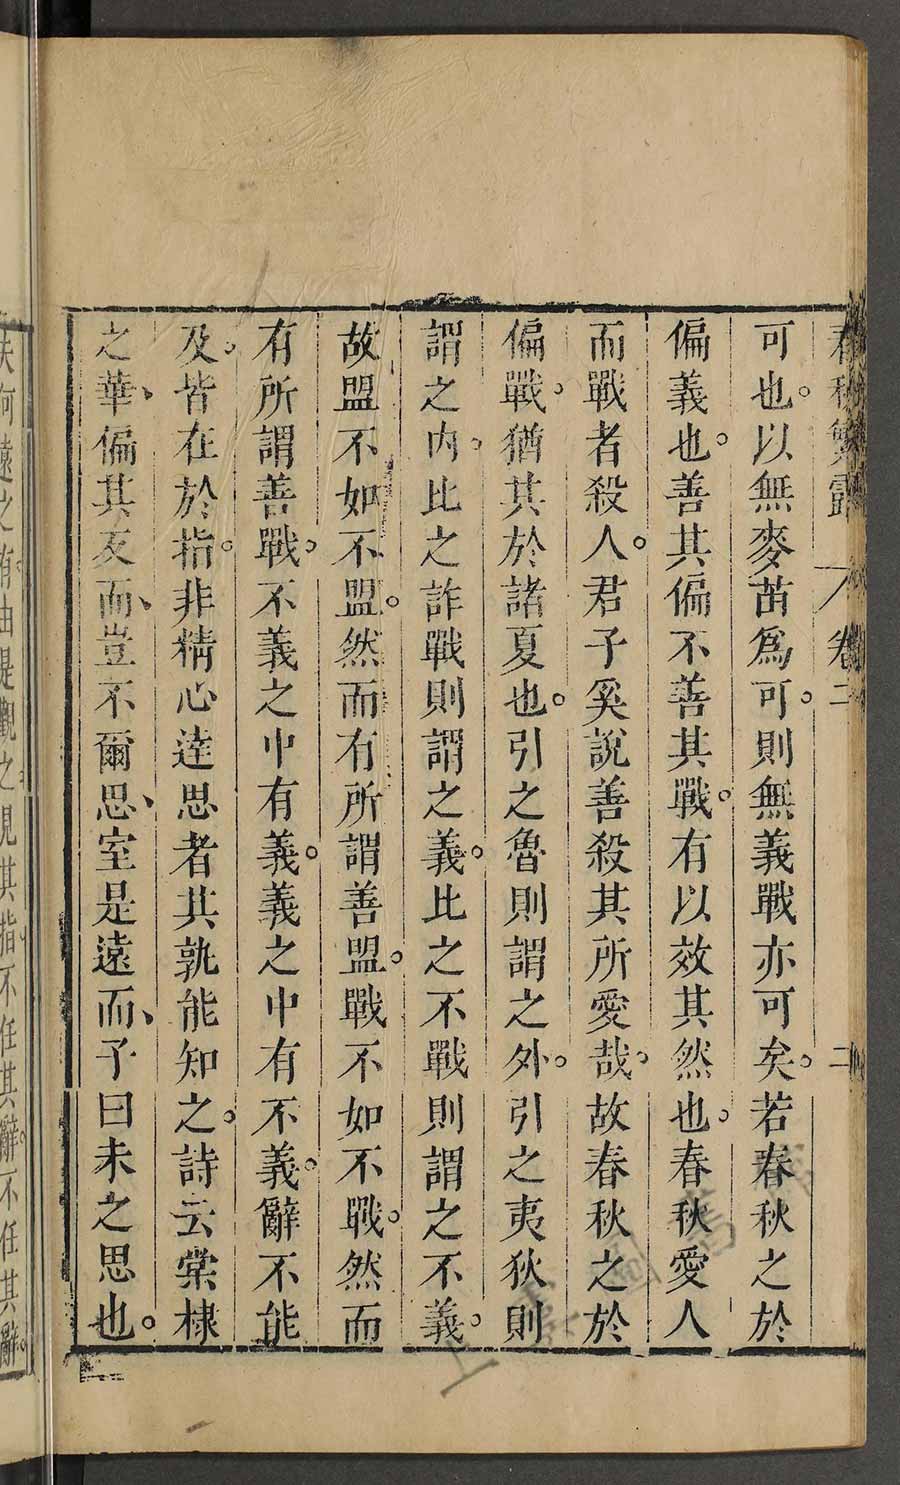 春秋繁露 卷二 二
可也。以無麥苗為可。則無義戰亦可矣。若春秋之於
偏義也。善其偏不善其戰。有以效其然也。春秋愛人
而戰者殺人。君子奚說善殺其所愛哉。故春秋之於
偏戰。猶其於諸夏也。引之魯則謂之外。引之夷狄則
謂之內。比之詐戰則謂之義。比之不戰則謂之不義。
故盟不如不盟。然而有所謂善盟。戰不如不戰。然而
有所謂善戰。不義之中有義。義之中有不義。辭不能
及。皆在於指。非精心達思者其孰能知之。詩云棠棣
之華、偏其反而、豈不爾思、室是遠而、子曰未之思也。
夫何遠之有。由是觀之見其指不任其辭。不任其辭。